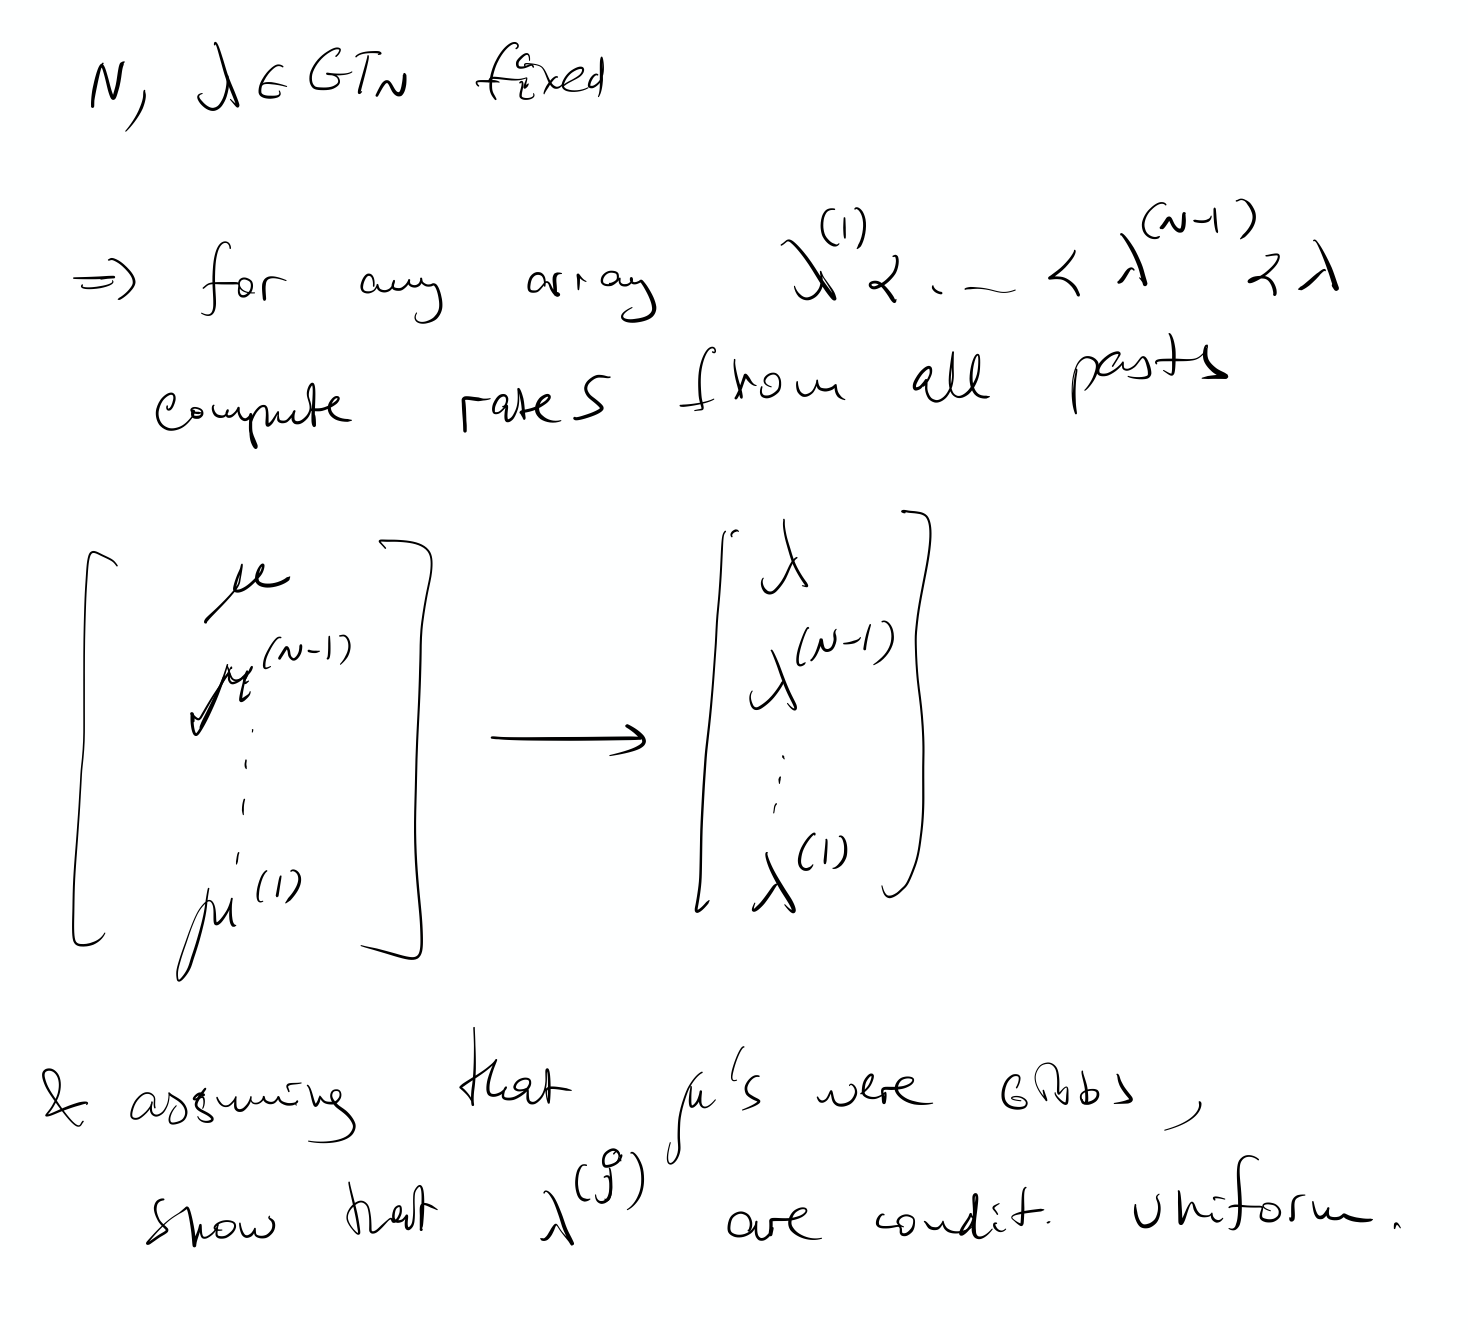 N, λ ∈ GT_N fixed
⇒ for any array λ^(1) ≺ . _ ≺ λ^(N-1) ≺ λ
compute rates from all pasts
[ μ ] → [ λ ]
[ μ^(N-1) ] [ λ^(N-1) ]
⋮ ⋮
[ μ^(1) ] [ λ^(1) ]
& assuming that μ's were Gibbs,
show that λ^(j) are condit. uniform.